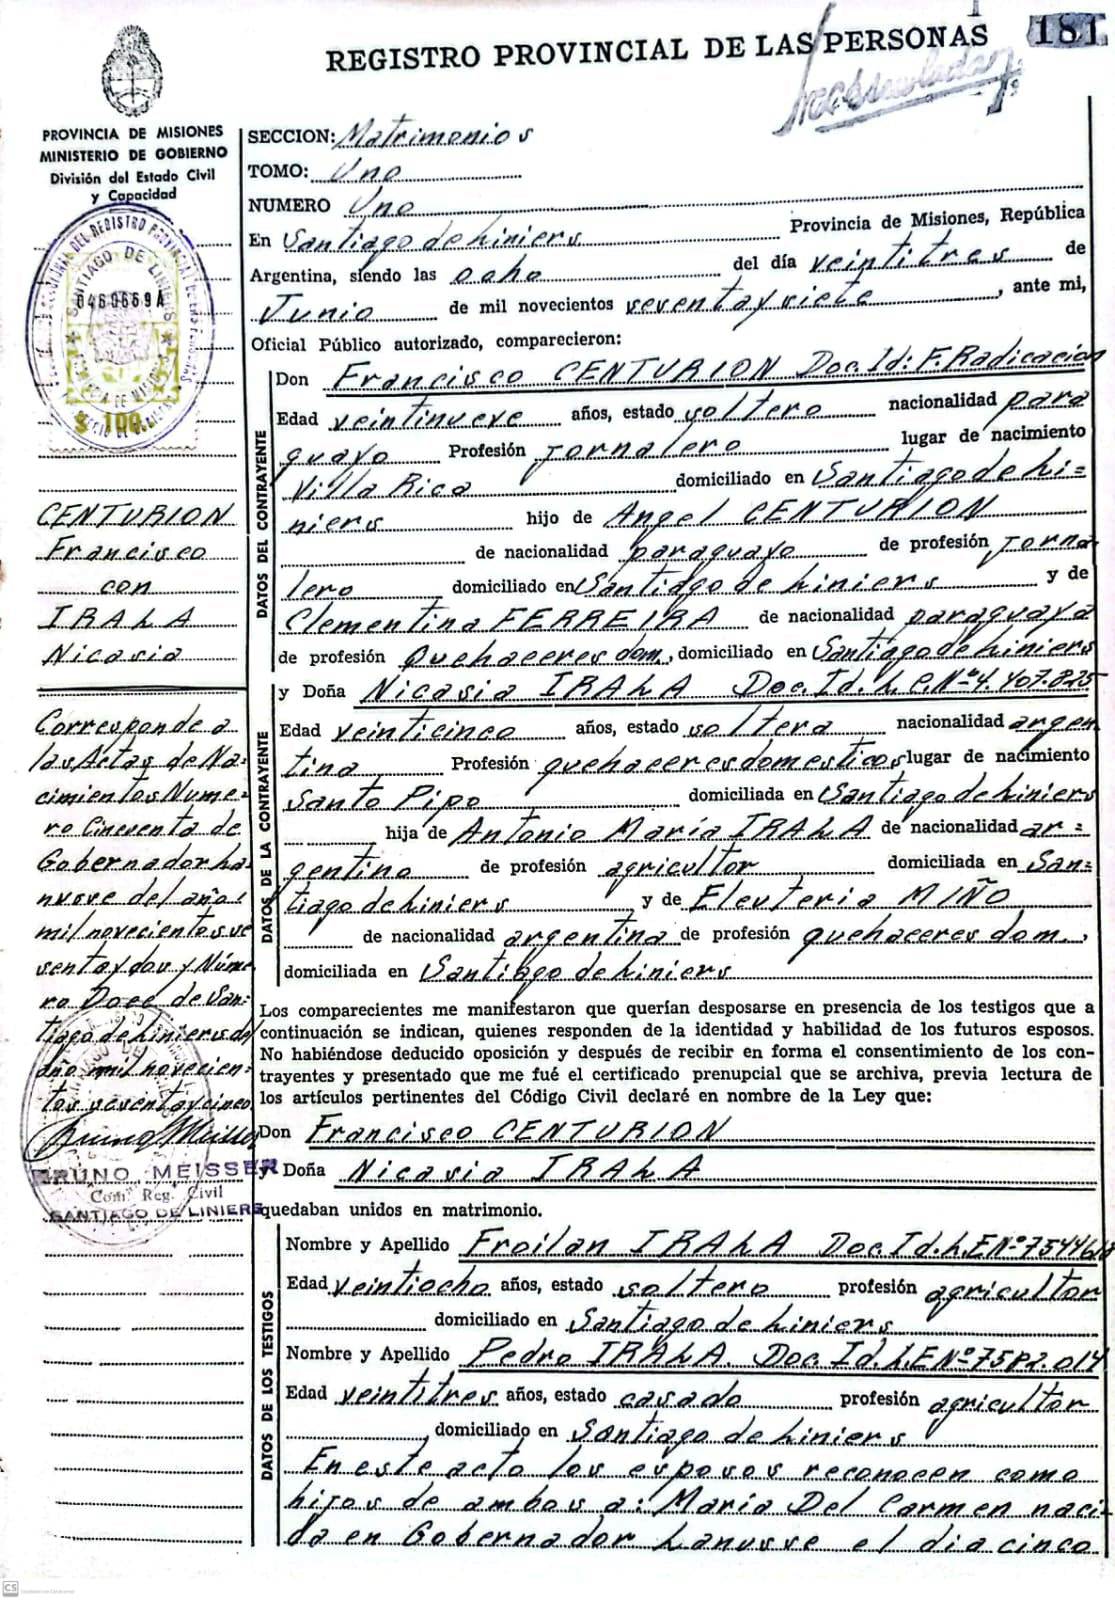 REGISTRO PROVINCIAL DE LAS PERSONAS
181
PROVINCIA DE MISIONES
MINISTERIO DE GOBIERNO
División del Estado Civil
y Capacidad
SANTIAGO DE LINIERS
0460669A
$ 100
CENTURION
Francisco
con
IRALA
Nicasia
Corresponde a
las Actas de Na-
cimientos Nume-
ro Cincuenta de
Gobernador La
nusse del año
mil novecientos se
senta y dos y Núme
ro Doce de San-
tiago de Liniers del
año mil novecien-
tos sesenta y cinco
BRUNO MEISSER
Com. Reg. Civil
SANTIAGO DE LINIERS
SECCION: Matrimonios
TOMO: Uno
NUMERO Uno
En Santiago de Liniers Provincia de Misiones, República
Argentina, siendo las ocho del día veintitres de
Junio de mil novecientos setenta y siete, ante mi,
Oficial Público autorizado, comparecieron:
DATOS DEL CONTRAYENTE
Don Francisco CENTURION Doc. Id: F. Radicación
Edad veintinueve años, estado soltero nacionalidad para
guayo Profesión Jornalero lugar de nacimiento
Villa Rica domiciliado en Santiago de Li=
niers hijo de Angel CENTURION
de nacionalidad paraguayo de profesión Jorna
lero domiciliado en Santiago de Liniers y de
Clementina FERREIRA de nacionalidad paraguaya
de profesión Quehaceres dom., domiciliado en Santiago de Liniers
DATOS DE LA CONTRAYENTE
y Doña Nicasia IRALA Doc. Id. L.C.Nº 4.407.825
Edad veinticinco años, estado soltera nacionalidad argen
tina Profesión quehaceres domesticos lugar de nacimiento
Santo Pipo domiciliada en Santiago de Liniers
hija de Antonio María IRALA de nacionalidad ar=
gentino de profesión agricultor domiciliada en San=
tiago de Liniers y de Eleuteria MIÑO
de nacionalidad argentina de profesión quehaceres dom.,
domiciliada en Santiago de Liniers
Los comparecientes me manifestaron que querían desposarse en presencia de los testigos que a
continuación se indican, quienes responden de la identidad y habilidad de los futuros esposos.
No habiéndose deducido oposición y después de recibir en forma el consentimiento de los con-
trayentes y presentado que me fué el certificado prenupcial que se archiva, previa lectura de
los artículos pertinentes del Código Civil declaré en nombre de la Ley que:
Don Francisco CENTURION
y Doña Nicasia IRALA
quedaban unidos en matrimonio.
DATOS DE LOS TESTIGOS
Nombre y Apellido Froilan IRALA Doc. Id. L.E Nº
Edad veintiocho años, estado soltero profesión agricultor
domiciliado en Santiago de Liniers
Nombre y Apellido Pedro IRALA Doc. Id. L.E Nº 7582.014
Edad veintitres años, estado casado profesión agricultor
domiciliado en Santiago de Liniers
En este acto los esposos reconocen como
hijos de ambos a: María Del Carmen naci-
da en Gobernador Lanusse el dia cinco
CS